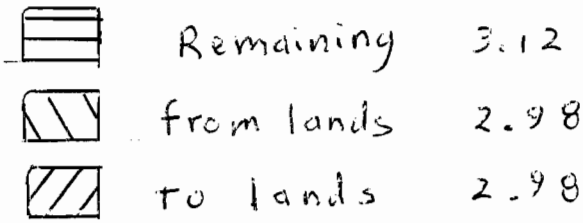 Remaining 3.12
from lands 2.98
to lands 2.98